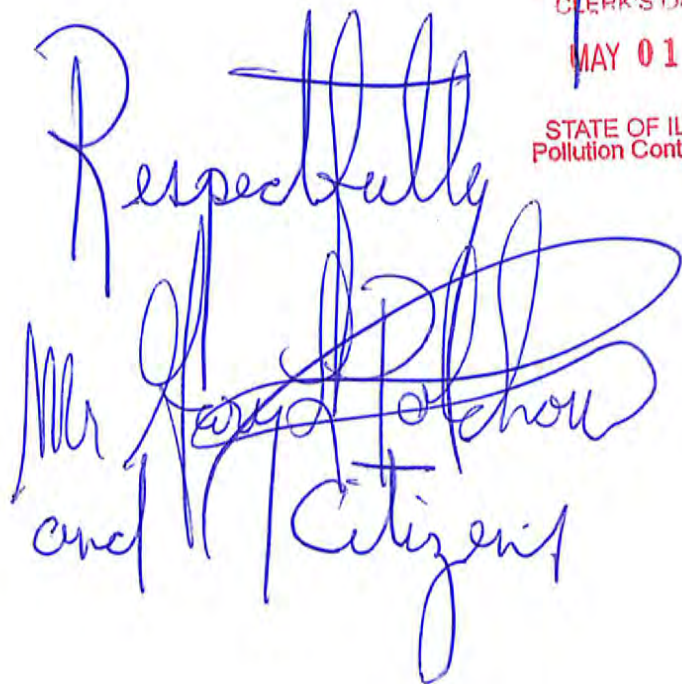 CLERK'S
MAY 01
STATE OF IL
Pollution Cont
Respectfully
Mr
and Citizens